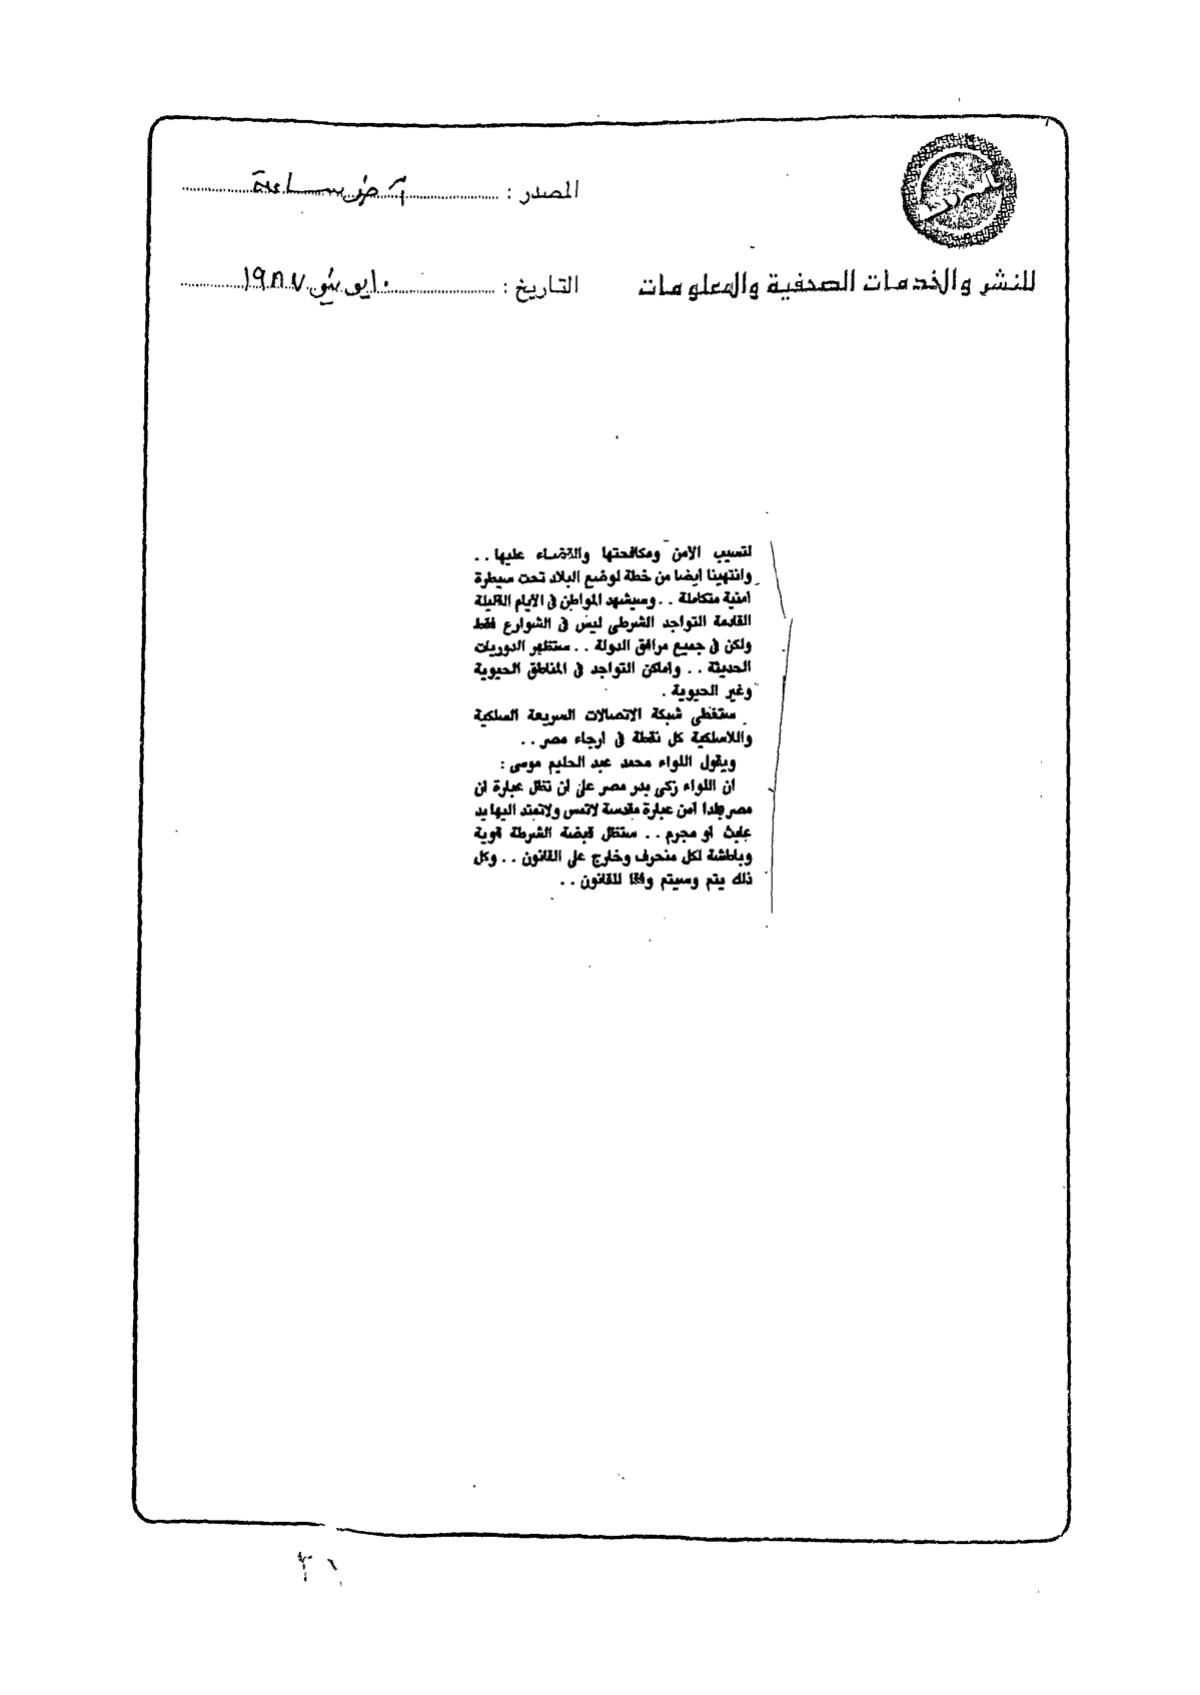 المصدر : آخر ساعة
للنشر والخدمات الصحفية والمعلومات
التاريخ : ١٠ يونيو ١٩٨٧
لتسيب الأمن ومكافحتها والقضاء عليها ..
وانتهينا ايضا من خطة لوضع البلاد تحت سيطرة
امنية متكاملة .. وسيشهد المواطن فى الايام القليلة
القادمة التواجد الشرطى ليس فى الشوارع فقط
ولكن فى جميع مرافق الدولة .. ستظهر الدوريات
الحديثة .. واماكن التواجد فى المناطق الحيوية
وغير الحيوية .
ستغطى شبكة الاتصالات السريعة السلكية
واللاسلكية كل نقطة فى ارجاء مصر ..
ويقول اللواء محمد عبد الحليم موسى :
ان اللواء زكى بدر مصر على ان تظل عبارة ان
مصر بلدا امن عبارة مقدسة لاتمس ولاتمتد اليها يد
عابث او مجرم .. ستظل قبضة الشرطة قوية
وباطشة لكل منحرف وخارج على القانون .. وكل
ذلك يتم وسيتم وفقا للقانون ..